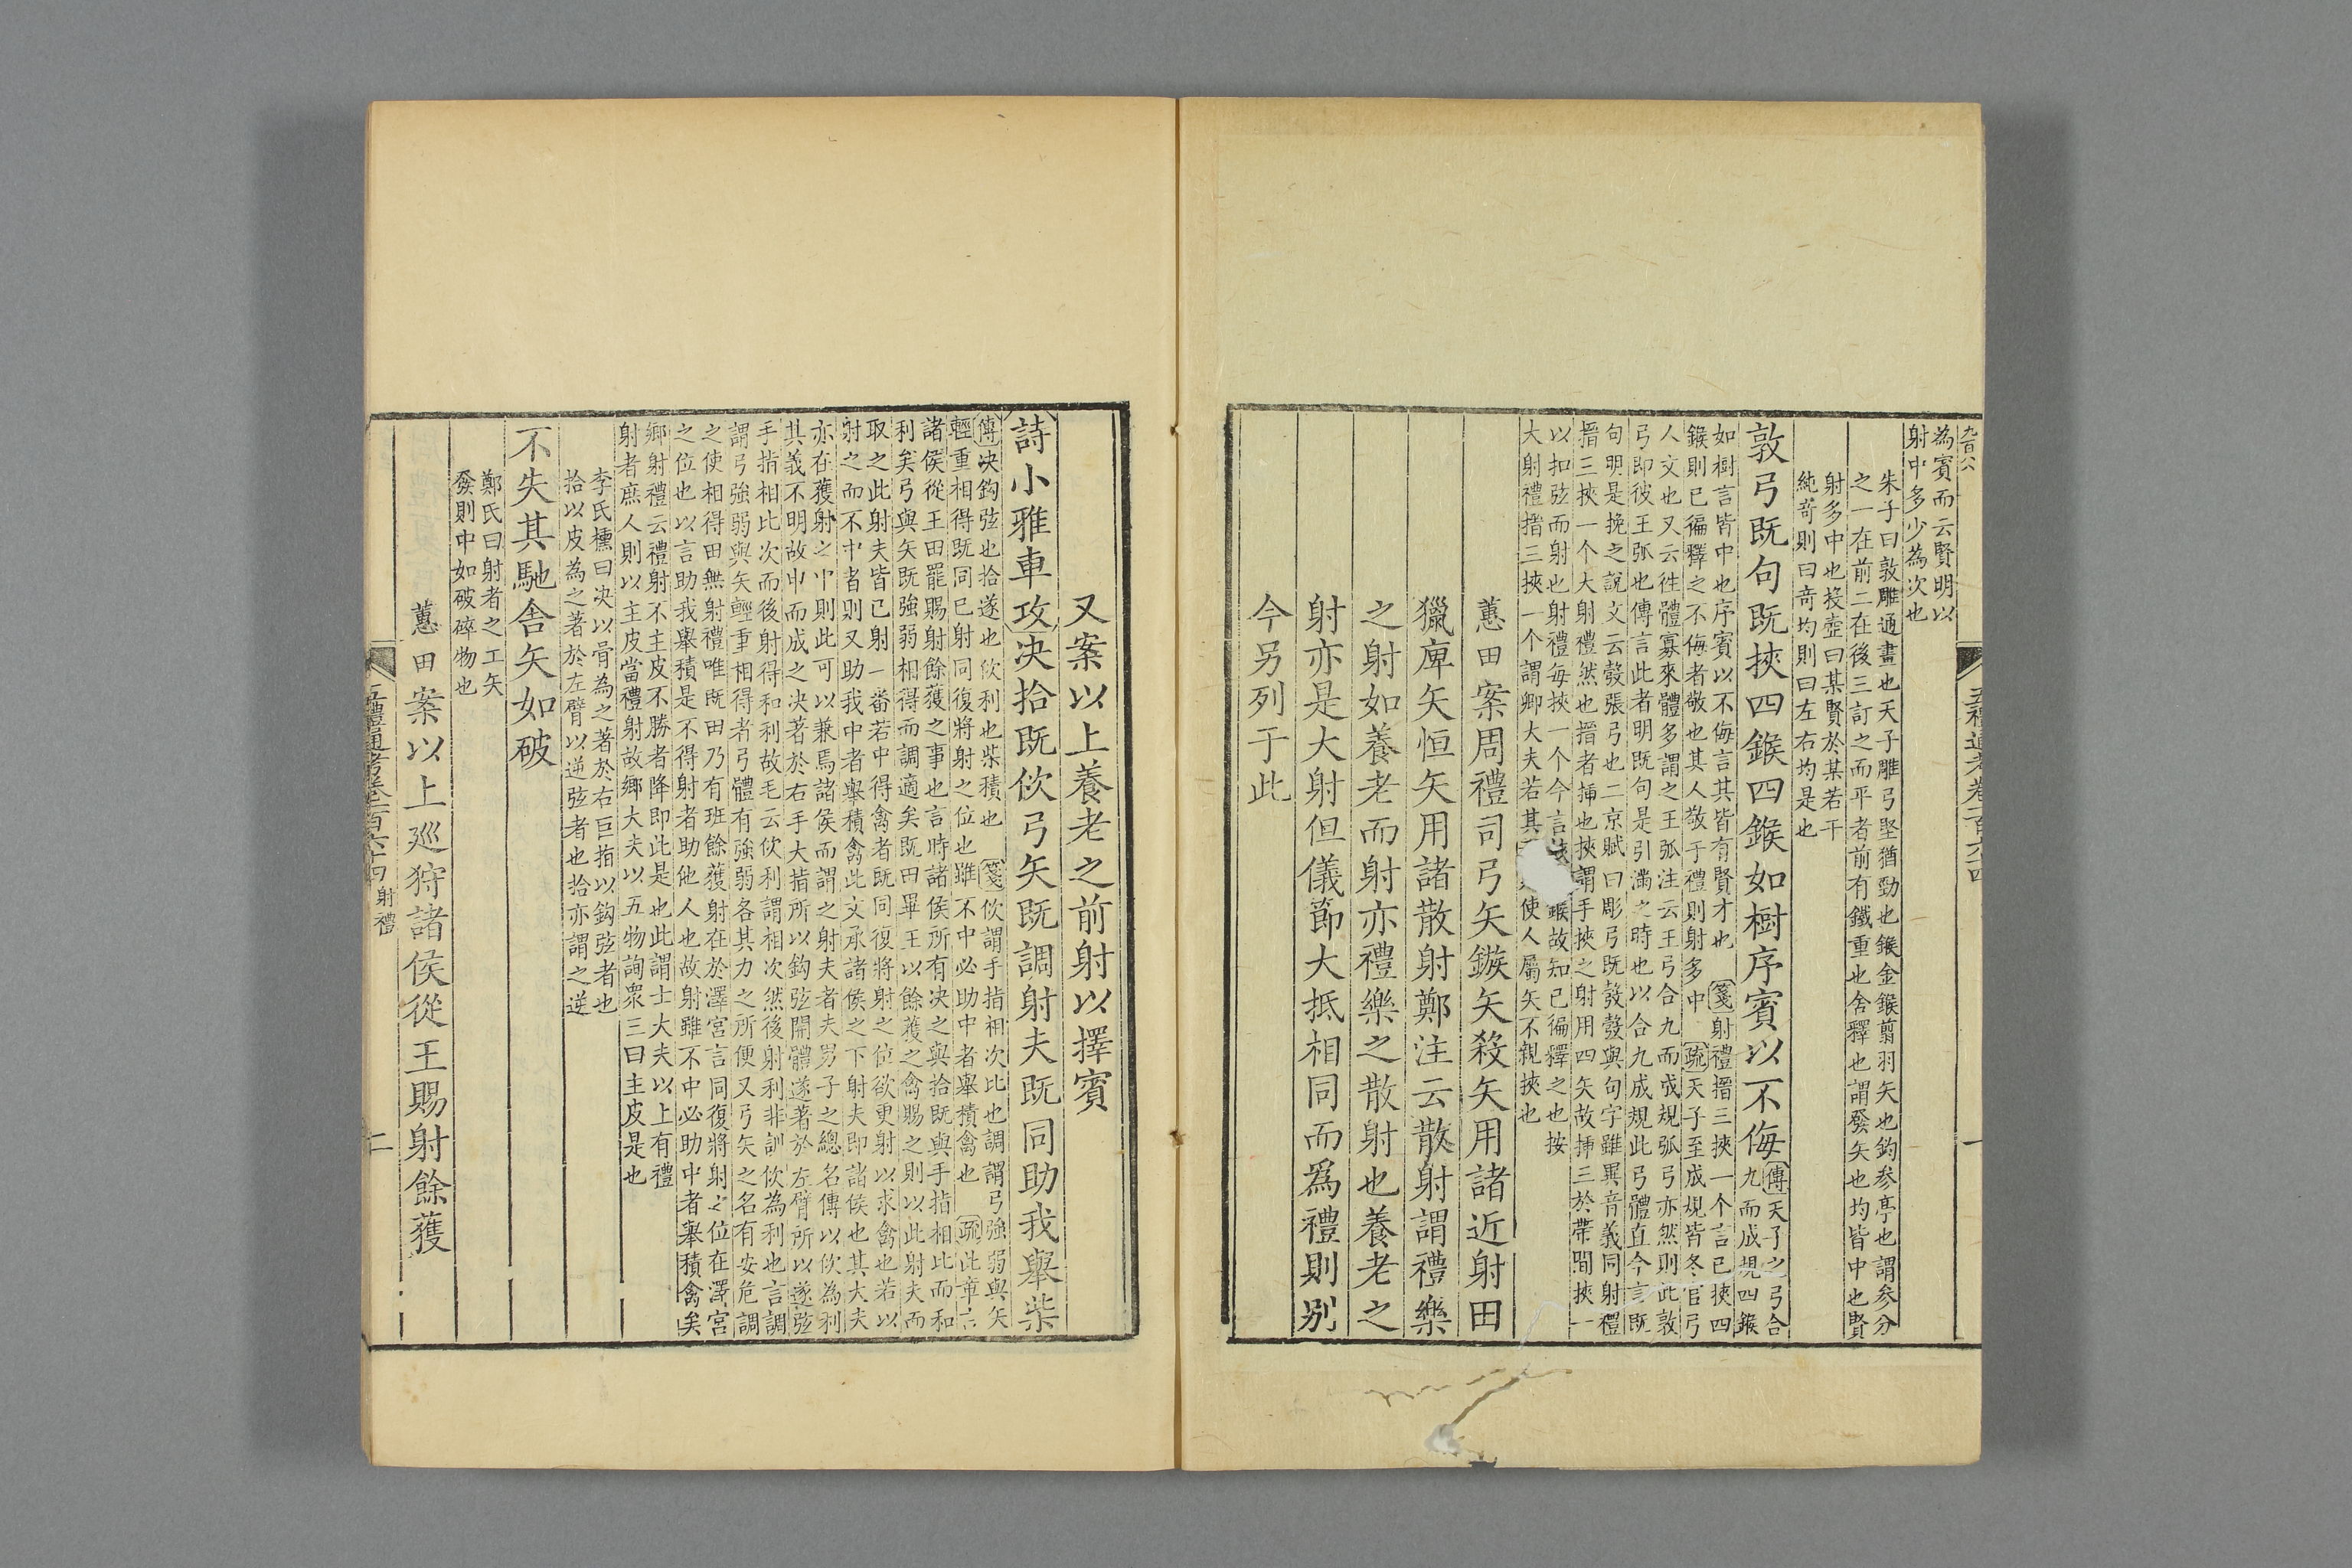 為賓而云賢明以
射中多少為次也
朱子曰敦雕通畫也天子雕弓堅猶勁也鍭金鍭翦羽矢也鈞参亭也謂参分
之一在前二在後三訂之而平者前有鐵重也舍釋也謂發矢也均皆中也賢
射多中也投壺曰某賢於某若干
純奇則曰奇均則曰左右均是也
敦弓既句既挾四鍭四鍭如樹序賓以不侮
傳天子之弓合
九而成規四鍭
如樹言皆中也序賓以不侮言其皆有賢才也 箋射禮搢三挾一个言已挾四
鍭則已徧釋之不侮者敬也其人敬于禮則射多中 疏天子至成規皆冬官弓
人文也又云徃體寡來體多謂之王弧注云王弓合九而成規弧弓亦然則此敦
弓即彼王弧也傳言此者明既句是引滿之時也以合九成規此弓體直今言既
句明是挽之說文云彀張弓也二京賦曰彫弓既彀彀與句字雖異音義同射禮
搢三挾一个大射禮然也搢者挿也挾謂手挾之射用四矢故挿三於帶間挾一
以扣弦而射也射禮每挾一个今言鍭故知已徧釋之也按
大射禮搢三挾一个謂卿大夫若其使人屬矢不親挾也
蕙田案周禮司弓矢鏃矢殺矢用諸近射田
獵庳矢恒矢用諸散射鄭注云散射謂禮樂
之射如養老而射亦禮樂之散射也養老之
射亦是大射但儀節大抵相同而爲禮則别
今另列于此
又案以上養老之前射以擇賓
詩小雅車攻決拾既佽弓矢既調射夫既同助我舉柴
傳決鈎弦也拾遂也佽利也柴積也 箋佽謂手指相次比也調謂弓強弱與矢
輕重相得既同已射同復將射之位也雖不中必助中者舉積禽也 疏此章六
諸侯從王田罷賜射餘獲之事也言時諸侯所有決之與拾既與手指相比而和
利矣弓與矢既強弱相得而調適矣既田畢王以餘獲之禽賜之則以此射夫而
取之此射夫皆已射一番若中得禽者既同復將射之位欲更射以求禽也若以
射之而不中者則又助我中者舉積禽此文承諸侯之下射夫即諸侯也其大夫
亦在獲射之中則此可以兼焉諸侯而謂之射夫者夫男子之總名傳以佽為利
其義不明故申而成之決著於右手大指所以鈎弦開體遂著於左臂所以遂弦
手指相此次而後射得和利故毛云佽利謂相次然後射利非訓佽為利也言調
謂弓強弱與矢輕重相得者弓體有強弱各其力之所便又弓矢之名有安危調
之使相得田無射禮唯既田乃有班餘獲射在於澤宮言同復將射之位在澤宮
之位也以言助我舉積是不得射者助他人也故射雖不中必助中者舉積禽矣
鄉射禮云禮射不主皮不勝者降即此是也此謂士大夫以上有禮
射者庶人則以主皮當禮射故鄉大夫以五物詢衆三曰主皮是也
李氏櫄曰決以骨為之著於右巨指以鈎弦者也
拾以皮為之著於左臂以逆弦者也拾亦謂之逆
不失其馳舍矢如破
鄭氏曰射者之工矢
發則中如破碎物也
蕙田案以上巡狩諸侯從王賜射餘獲
五禮通考卷一百六十四 射禮 二